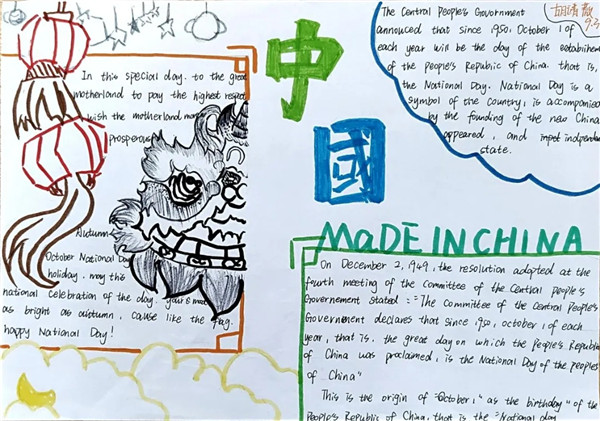 In this special day. to the great
motherland to pay the highest respect
wish the motherland more
prosperous
Autumn
October National Day
holiday. may this
national celebration of the day.
as bright as autumn, cause like the flag.
happy National Day!
中
國
The Central People's Government
announced that since 1950, October 1 of
each year will be the day of the
of the people's Republic of China. that is,
the National Day. National Day is a
symbol of the country, is accompanied
by the founding of the new China
appeared, and
state.
9.3
MaDE IN CHINA
On December 2, 1949, the resolution adopted at the
fourth meeting of the Committee of the Central people's
Governement stated: "The Committee of the Central People's
Government declares that since 1950, october 1 of each
year, that is. the great day on which the People's Republic
of China was proclaimed, is the National Day of the peoples
of China"
This is the origin of "October 1" as the birthday" of the
People's Republic of China. that is the "National day